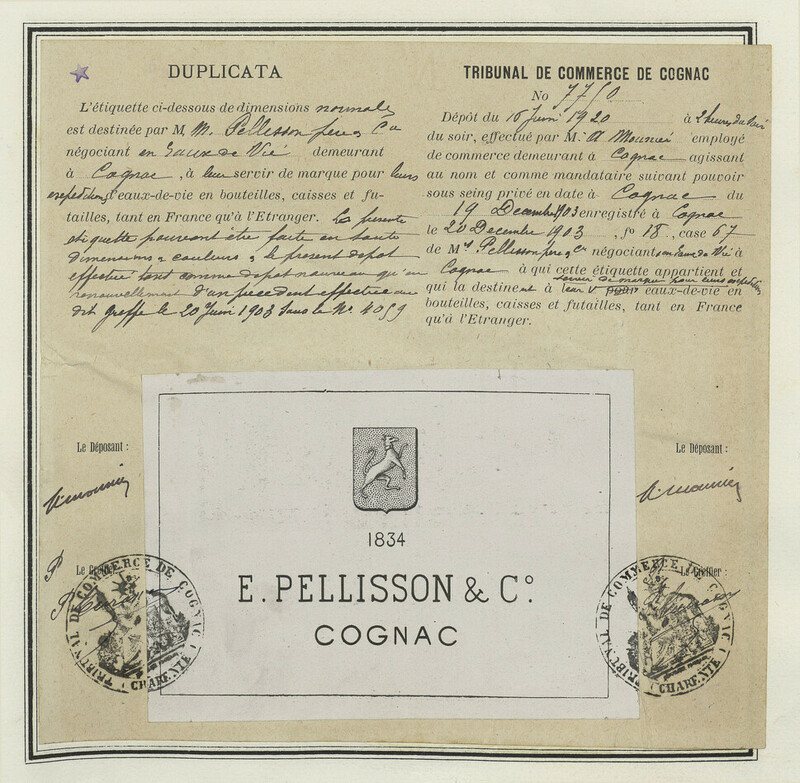 DUPLICATA
L'étiquette ci-dessous de dimensions normales
est destinée par M. M. Pellisson père & Co
négociant en Eaux de Vie demeurant
à Cognac, à leur servir de marque pour leurs
expéditions d'eaux-de-vie en bouteilles, caisses et fu-
tailles, tant en France qu'à l'Etranger. La présente
etiquette pouvant être faite en toute
dimensions & couleurs, le present depot
effectué tant comme depot nouveau qu'en
renouvellement d'un precedent effectué au
dit greffe le 20 Juin 1903 sous le No 4059
TRIBUNAL DE COMMERCE DE COGNAC
No 7750
Dépôt du 16 Juin 1920 à 2 heures du soir
du soir, effectué par M. A Mounier employé
de commerce demeurant à Cognac agissant
au nom et comme mandataire suivant pouvoir
sous seing privé en date à Cognac du
19 Decembre 1903 enregistré à Cognac
le 20 Decembre 1903, fo 18, case 67
de M. Pellisson père & Co négociants en Eaux de Vie à
Cognac à qui cette étiquette appartient et
servir de marque pour leurs expeditions
qui la destinent à leur pour eaux-de-vie en
bouteilles, caisses et futailles, tant en France
qu'à l'Etranger.
Le Déposant :
A. Mounier
Le Greffier :
TRIBUNAL DE COMMERCE DE COGNAC
CHARENTE
1834
E. PELLISSON & Co.
COGNAC
Le Déposant :
A. Mounier
Le Greffier :
TRIBUNAL DE COMMERCE DE COGNAC
CHARENTE